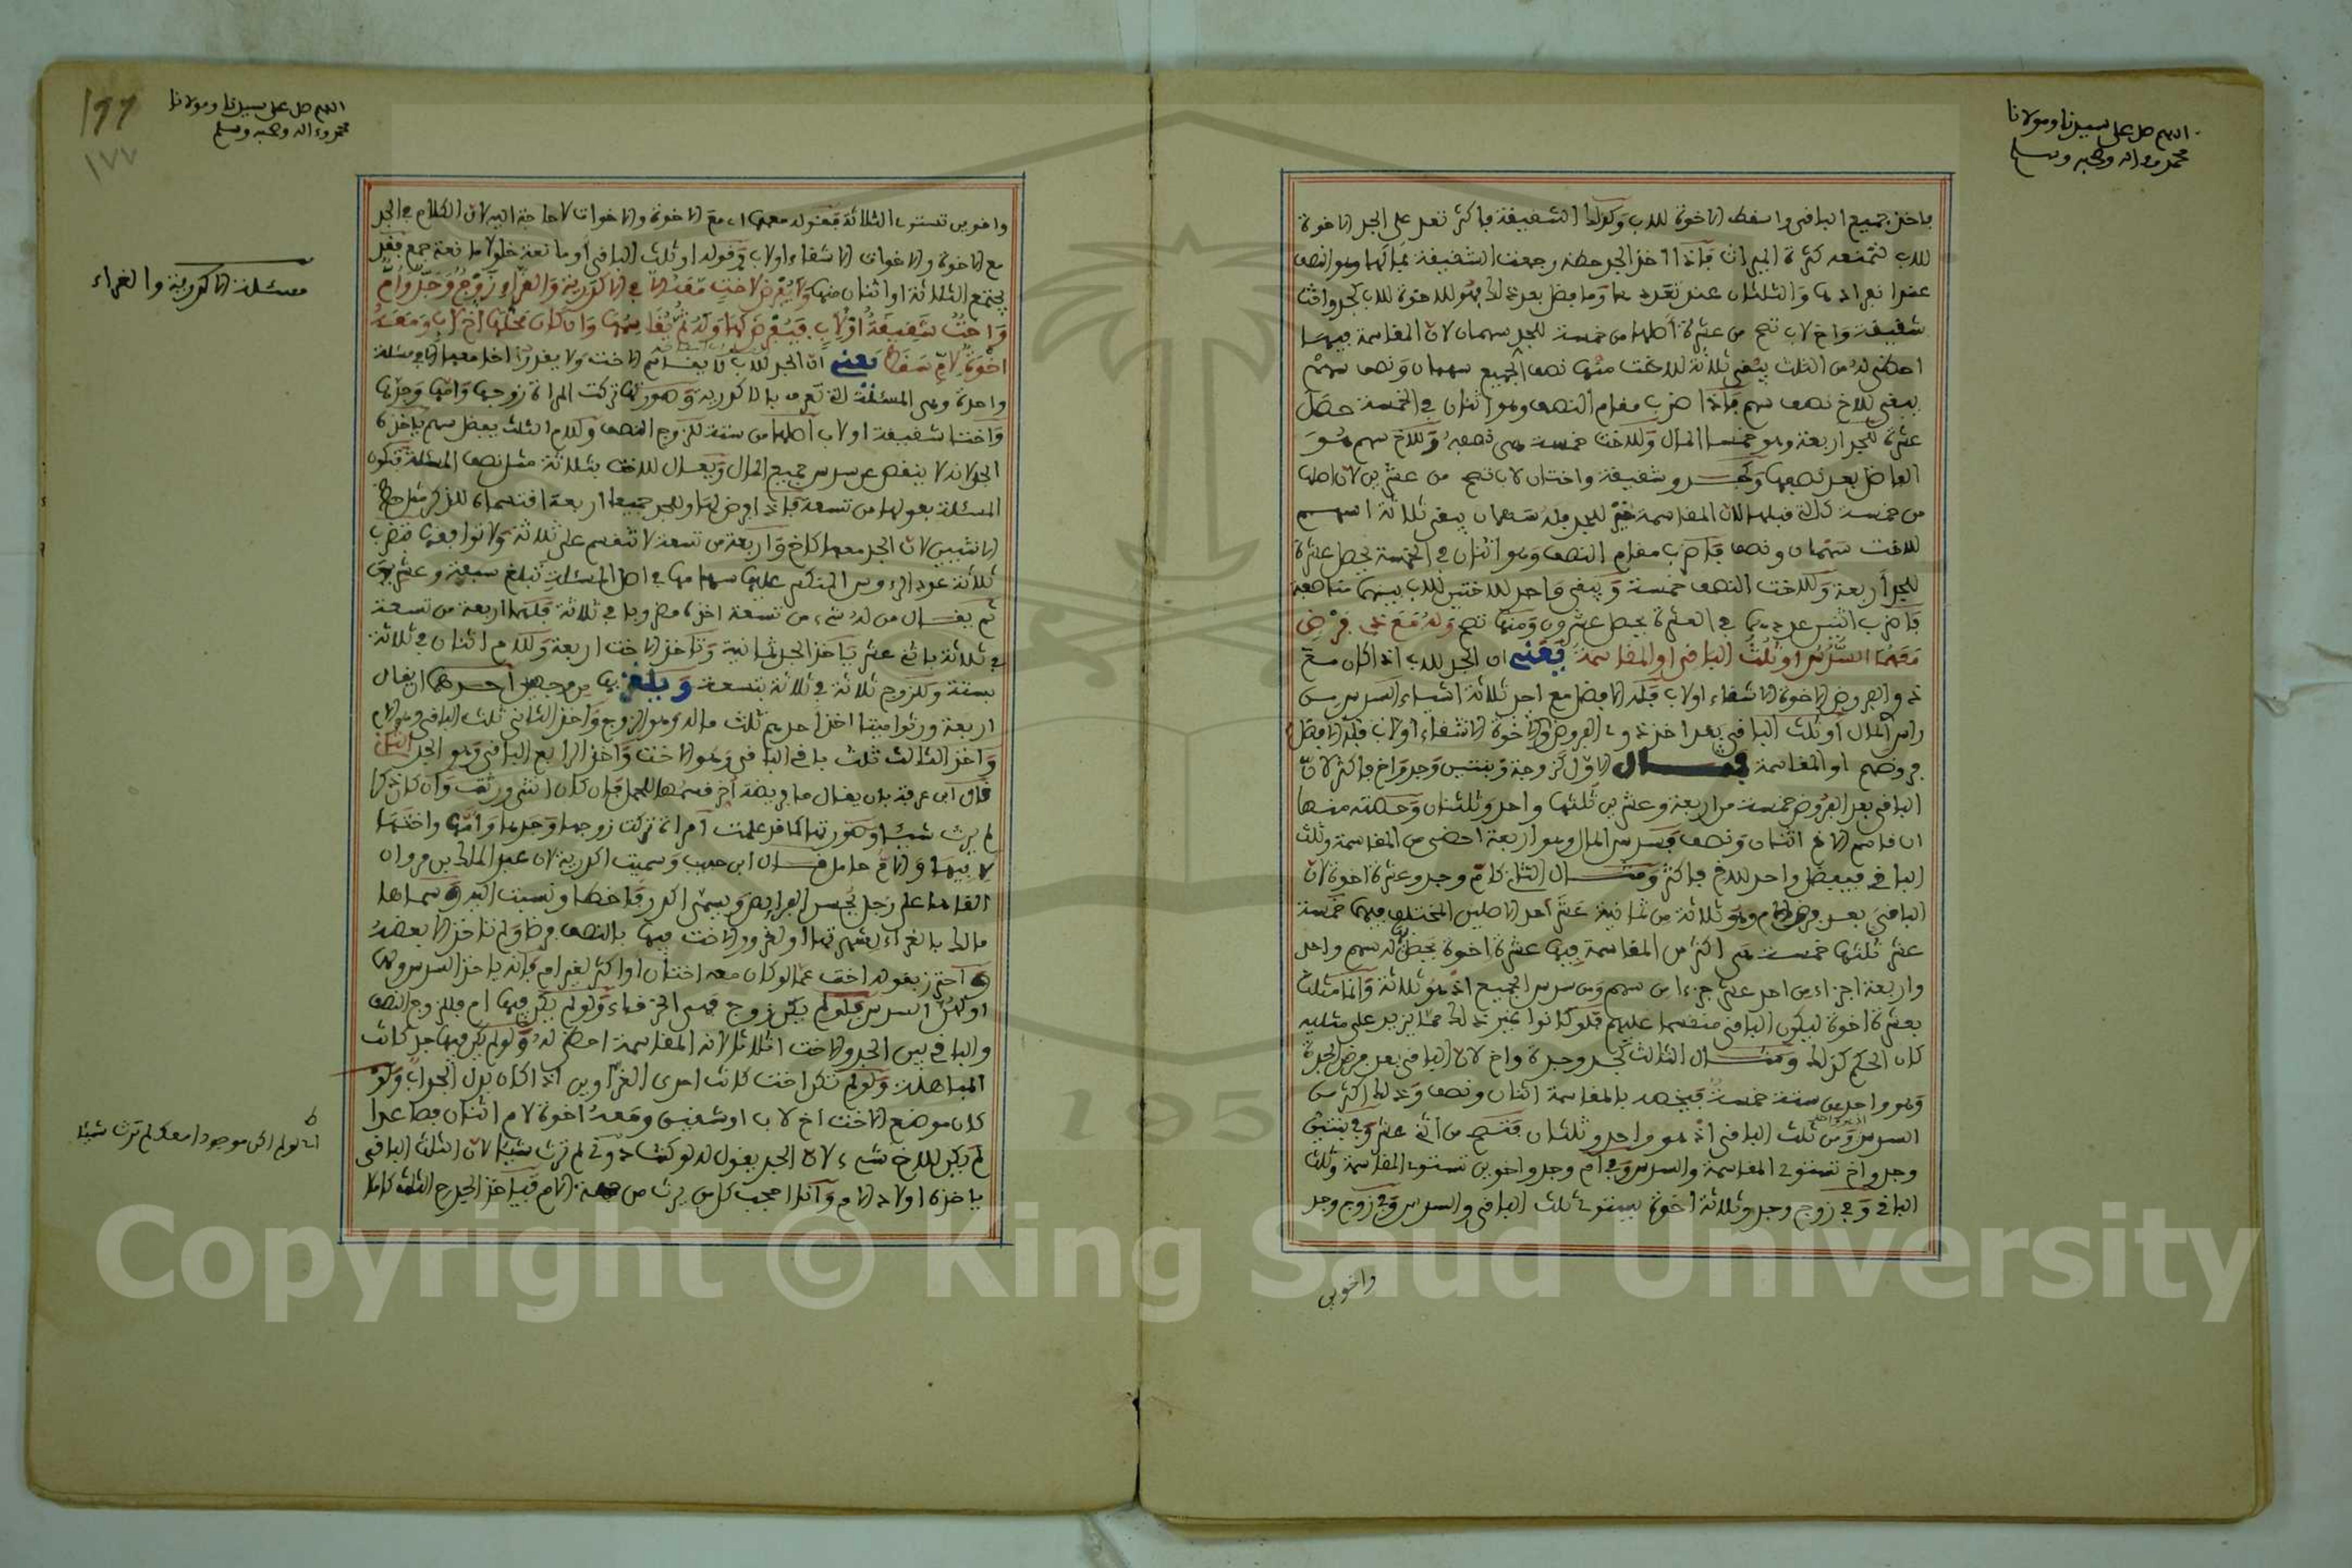 اللهم صل على سيدنا ومولانا
محمد وءاله وصحبه وسلم
ياخذ جميع الباقي واسقط الاخوة للاب وكذلك الشقيقة فاكثر تعد على الجد الاخوة
للاب لتمنعه كثرة الميراث فاذا اخذ الجد حظه رجعت الشقيقة بمالها وهو النصف
عند انفرادها والثلثان عند تعددها وما فضل بعد ذلك فهو للاخوة للاب كجد واخت
شقيقة واخ لاب تصح من عشرة اصلها من خمسة للجد سهمان لان المقاسمة فيها
احظى له من الثلث يبقى ثلاثة للاخت منها نصف الجميع سهمان ونصف سهم
يبقى للاخ نصف سهم فاذا ضرب مقام النصف وهو اثنان في الخمسة حصل
عشرة للجد اربعة وهو خمسا المال وللاخت خمسة هي نصفه وللاخ سهم هو
الفاضل بعد نصفها وكجد وشقيقة واختان لاب تصح من عشرين لان اصلها
من خمسة كالتي قبلها لان المقاسمة خير للجد فله سهمان يبقى ثلاثة اسهم
للاخت سهمان ونصف فاضرب مقام النصف وهو اثنان في الخمسة يحصل عشرة
للجد اربعة وللاخت النصف خمسة ويبقى واحد للاختين للاب بينهما مناصفة
فاضرب اثنين عددهما في العشرة يحصل عشرون ومنها تصح وله مع ذي فرض
معهما السدس او ثلث الباقي او المقاسمة يعني ان الجد للاب اذا كان مع
ذوالفروض الاخوة الاشقاء او لاب فله الافضل مع احد ثلاثة اشياء السدس من
راس المال او ثلث الباقي بعد اخذ ذوي الفروض والاخوة الاشقاء او لاب فله الافضل
فروضهم او المقاسمة مثال الاول كزوجة وبنتين وجد واخ فاكثر لان
الباقي بعد الفروض خمسة من اربعة وعشرين ثلثها واحد وثلثان وحصته منها
ان قاسم الاخ اثنان ونصف وسدس المال وهو اربعة احظى من المقاسمة وثلث
الباقي فيفضل واحد للاخ فاكثر ومثال الثاني كام وجد وعشرة اخوة لان
الباقي بعد فرض الام وهو ثلاثة من ثمانية عشر احد الاصلين المختلف فيهما خمسة
عشر ثلثها خمسة هي اكثر من المقاسمة فيها عشرة اخوة يحصل له سهم واحد
واربعة اجزاء من احد عشر جزءا من سهم ومن سدس الجميع اذ هو ثلاثة وانما مثلت
بعشرة اخوة ليكون الباقي منقسما عليهم فلو كانوا غير ذلك مما يزيد على مثليه
كان الحكم كذلك ومثال الثالث كجد وجدة واخ لان الباقي بعد فرض الجدة
وهو واحد من ستة خمسة فيخصه بالمقاسمة اثنان ونصف وذلك اكثر من
السدس ومن ثلث الباقي اذ هو واحد وثلثان فتصح من اثني عشر وفي بنتين
وجد واخ تستوي المقاسمة والسدس وفي ام وجد واخوين تستوي المقاسمة وثلث
الباقي وفي زوج وجد وثلاثة اخوة يستوي ثلث الباقي والسدس وفي زوج وجد
واخوين
اللهم صل على سيدنا ومولانا
محمد وءاله وصحبه وسلم
١٧٧
واخوين تستوي الثلاثة فقوله معهما اي مع الاخوة والاخوات لا حاجة اليه لان الكلام في الجد
مع الاخوة والاخوات الاشقاء او لاب وقوله او ثلث الباقي او مانعة خلو لا مانعة جمع فقد
يجتمع الثلاثة او اثنان منها ولا يفرض لاخت معه الا في الاكدرية والغراء زوج وجد وام
واخت شقيقة او لاب فيفرض لها وله ثم يقاسمها وان كان محلها اخ لاب ومعه
اخوة لام سقط يعني ان الجد للاب لا يقاسم الاخت ولا يقدر اخا معها الا في مسئلة
واحدة وهي المسئلة التي تعرف بالاكدرية وصورتها تركت المراة زوجها وامها وجدها
واختا شقيقة او لاب اصلها من ستة للزوج النصف وللام الثلث يفضل سهم ياخذه
الجد لانه لا ينقص عن سدس جميع المال ويعال للاخت بثلاثة مثل نصف المسئلة فتكون
المسئلة بعولها من تسعة فاذا فرض لها وللجد جميعا اربعة اقتسماه للذكر مثل حظ
الانثيين لان الجد معها كاخ واربعة من تسعة لا تنقسم على ثلاثة ولا توافقها فتضرب
ثلاثة عدد الرءوس المنكسر عليها سهامها في اصل المسئلة تبلغ سبعة وعشرين
ثم يقال من له شيء من تسعة اخذه مضروبا في ثلاثة فلهما اربعة من تسعة
في ثلاثة باثني عشر ياخذ الجد ثمانية وتاخذ الاخت اربعة وللام اثنان في ثلاثة
بستة وللزوج ثلاثة في ثلاثة تسعة ويلغز بها من وجهين احدهما ان يقال
اربعة ورثوا ميتا اخذ احدهم ثلث ماله وهو الزوج واخذ الثاني ثلث الباقي وهو الام
واخذ الثالث ثلث باقي الباقي وهو الاخت واخذ الرابع الباقي وهو الجد الثاني
قال ابن عرفة بان يقال ما فريضة اخر قسمها للحمل فان كان انثى ورثت وان كان ذكرا
لم يرث شيئا وصورتها كما قد علمت امراة تركت زوجها وجدها وامها واختها
لابيها والام حامل قال ابن حبيب وسميت اكدرية لان عبد الملك بن مروان
القاها على رجل يحسن الفرايض ويسمى اكدر فاخطا ونسبت اليه وسماها
مالك بالغراء لشهرتها او لغرور الاخت فيها بالنصف فرضا ولم تاخذ الا بعضه
واحترز بقوله اخت عما لو كان معه اختان او اكثر لغير ام فانه ياخذ السدس ولها
او لهن السدس فلو لم يكن زوج فهي الخرقاء ولو لم يكن فيها ام فللزوج النصف
والباقي بين الجد والاخت اثلاثا لانه المقاسمة احظى له ولو لم يكن فيها جد كانت
المباهلة ولو لم تكن اخت كانت احدى الغراوين اذ اكان بدل الجد اب ولو
كان موضع الاخت اخ لاب او شقيق ومعه اخوة لام اثنان فصاعدا
لم يكن للاخ شيء لان الجد يقول له لو كنت دوني لم ترث شيئا لان الثلث الباقي
ياخذه اولاد الام وانا احجب كل من يرث من جهة الام فياخذ الجد ح الثلث كاملا
مسئلة الاكدرية والغراء
اي لو لم اكن موجودا معك لم ترث شيئا
Copyright © King Saud University
195